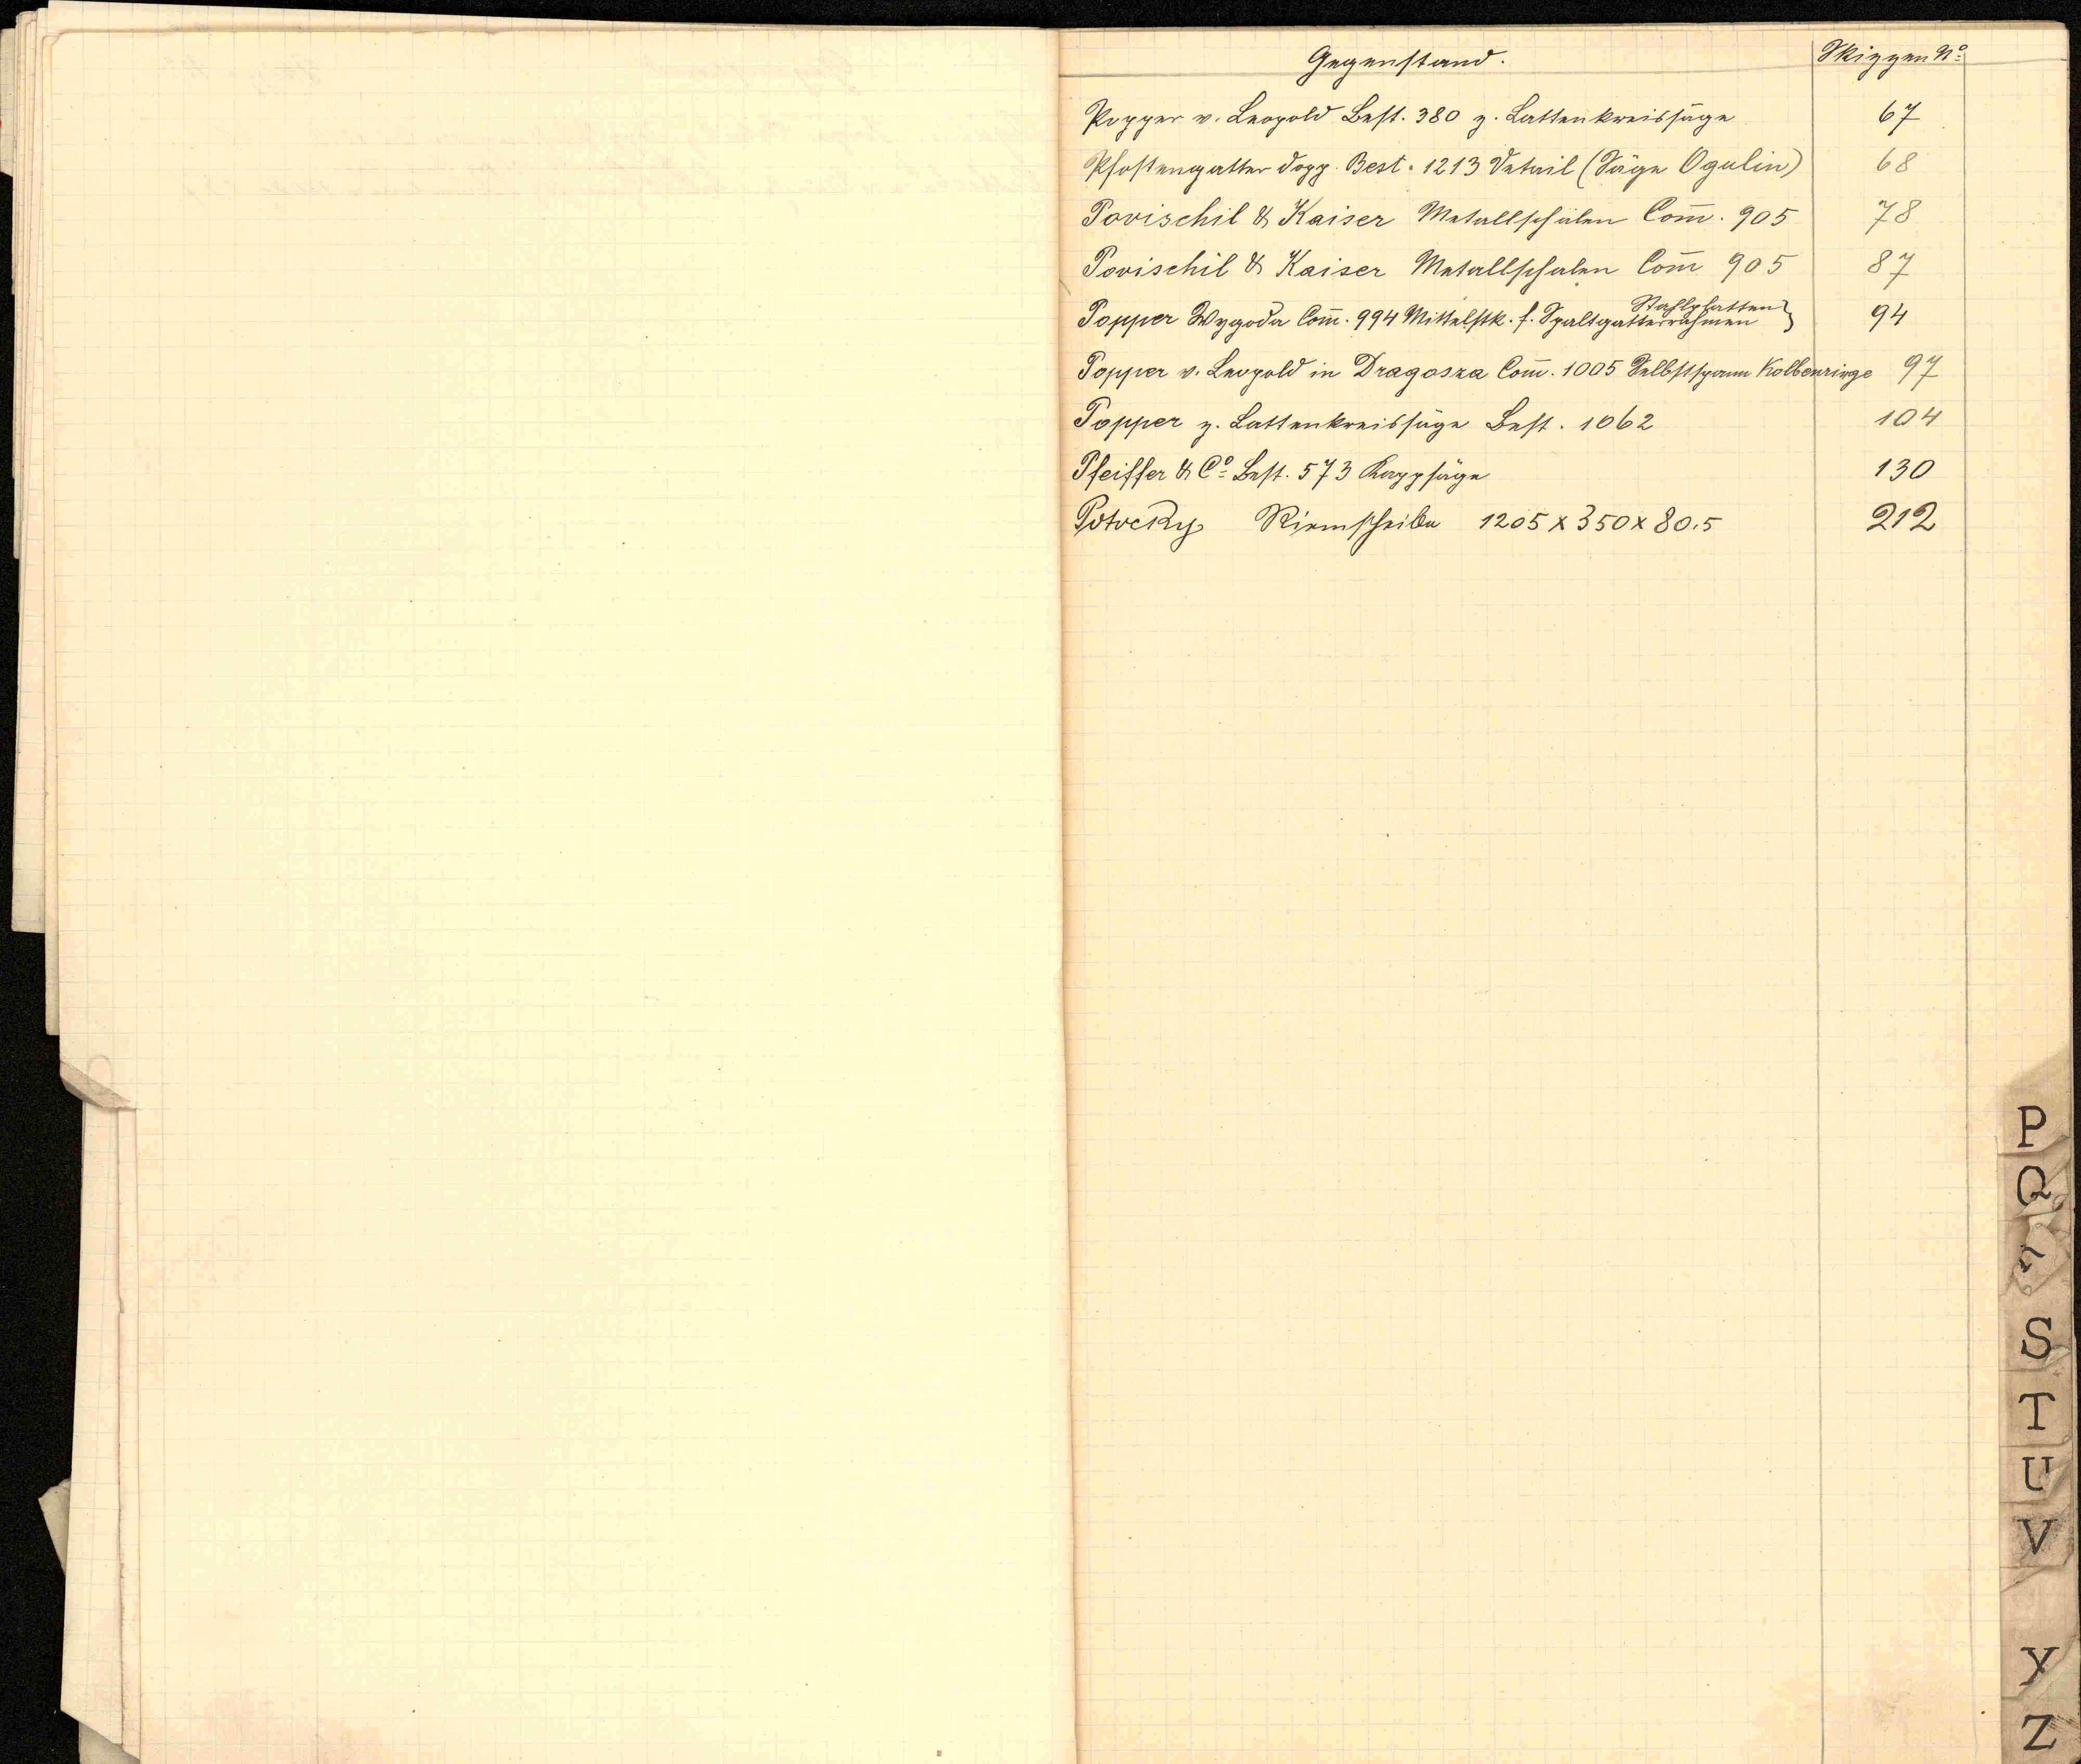 Gegenstand. Skizzen No:
Popper v. Leopold Best. 380 z. Lattenkreissäge 67
Pfostengatter dopp. Best. 1213 Detail (Säge Ogulin) 68
Povischil & Kaiser Metallschalen Com̅. 905 78
Povischil & Kaiser Metallschalen Com̅ 905 87
Stahlplatten
Popper Wygoda Com̅. 994 Mittelstk. f. Spaltgatterrahmen } 94
Popper v. Leopold in Dragosza Com̅. 1005 Selbstspann Kolbenringe 97
Popper z. Lattenkreissäge Best. 1062 104
Pfeiffer & Co: Best. 573 Kappsäge 130
Potocky Riemscheibe 1205 x 350 x 80.5 212
P
Q
S
T
U
V
Y
Z